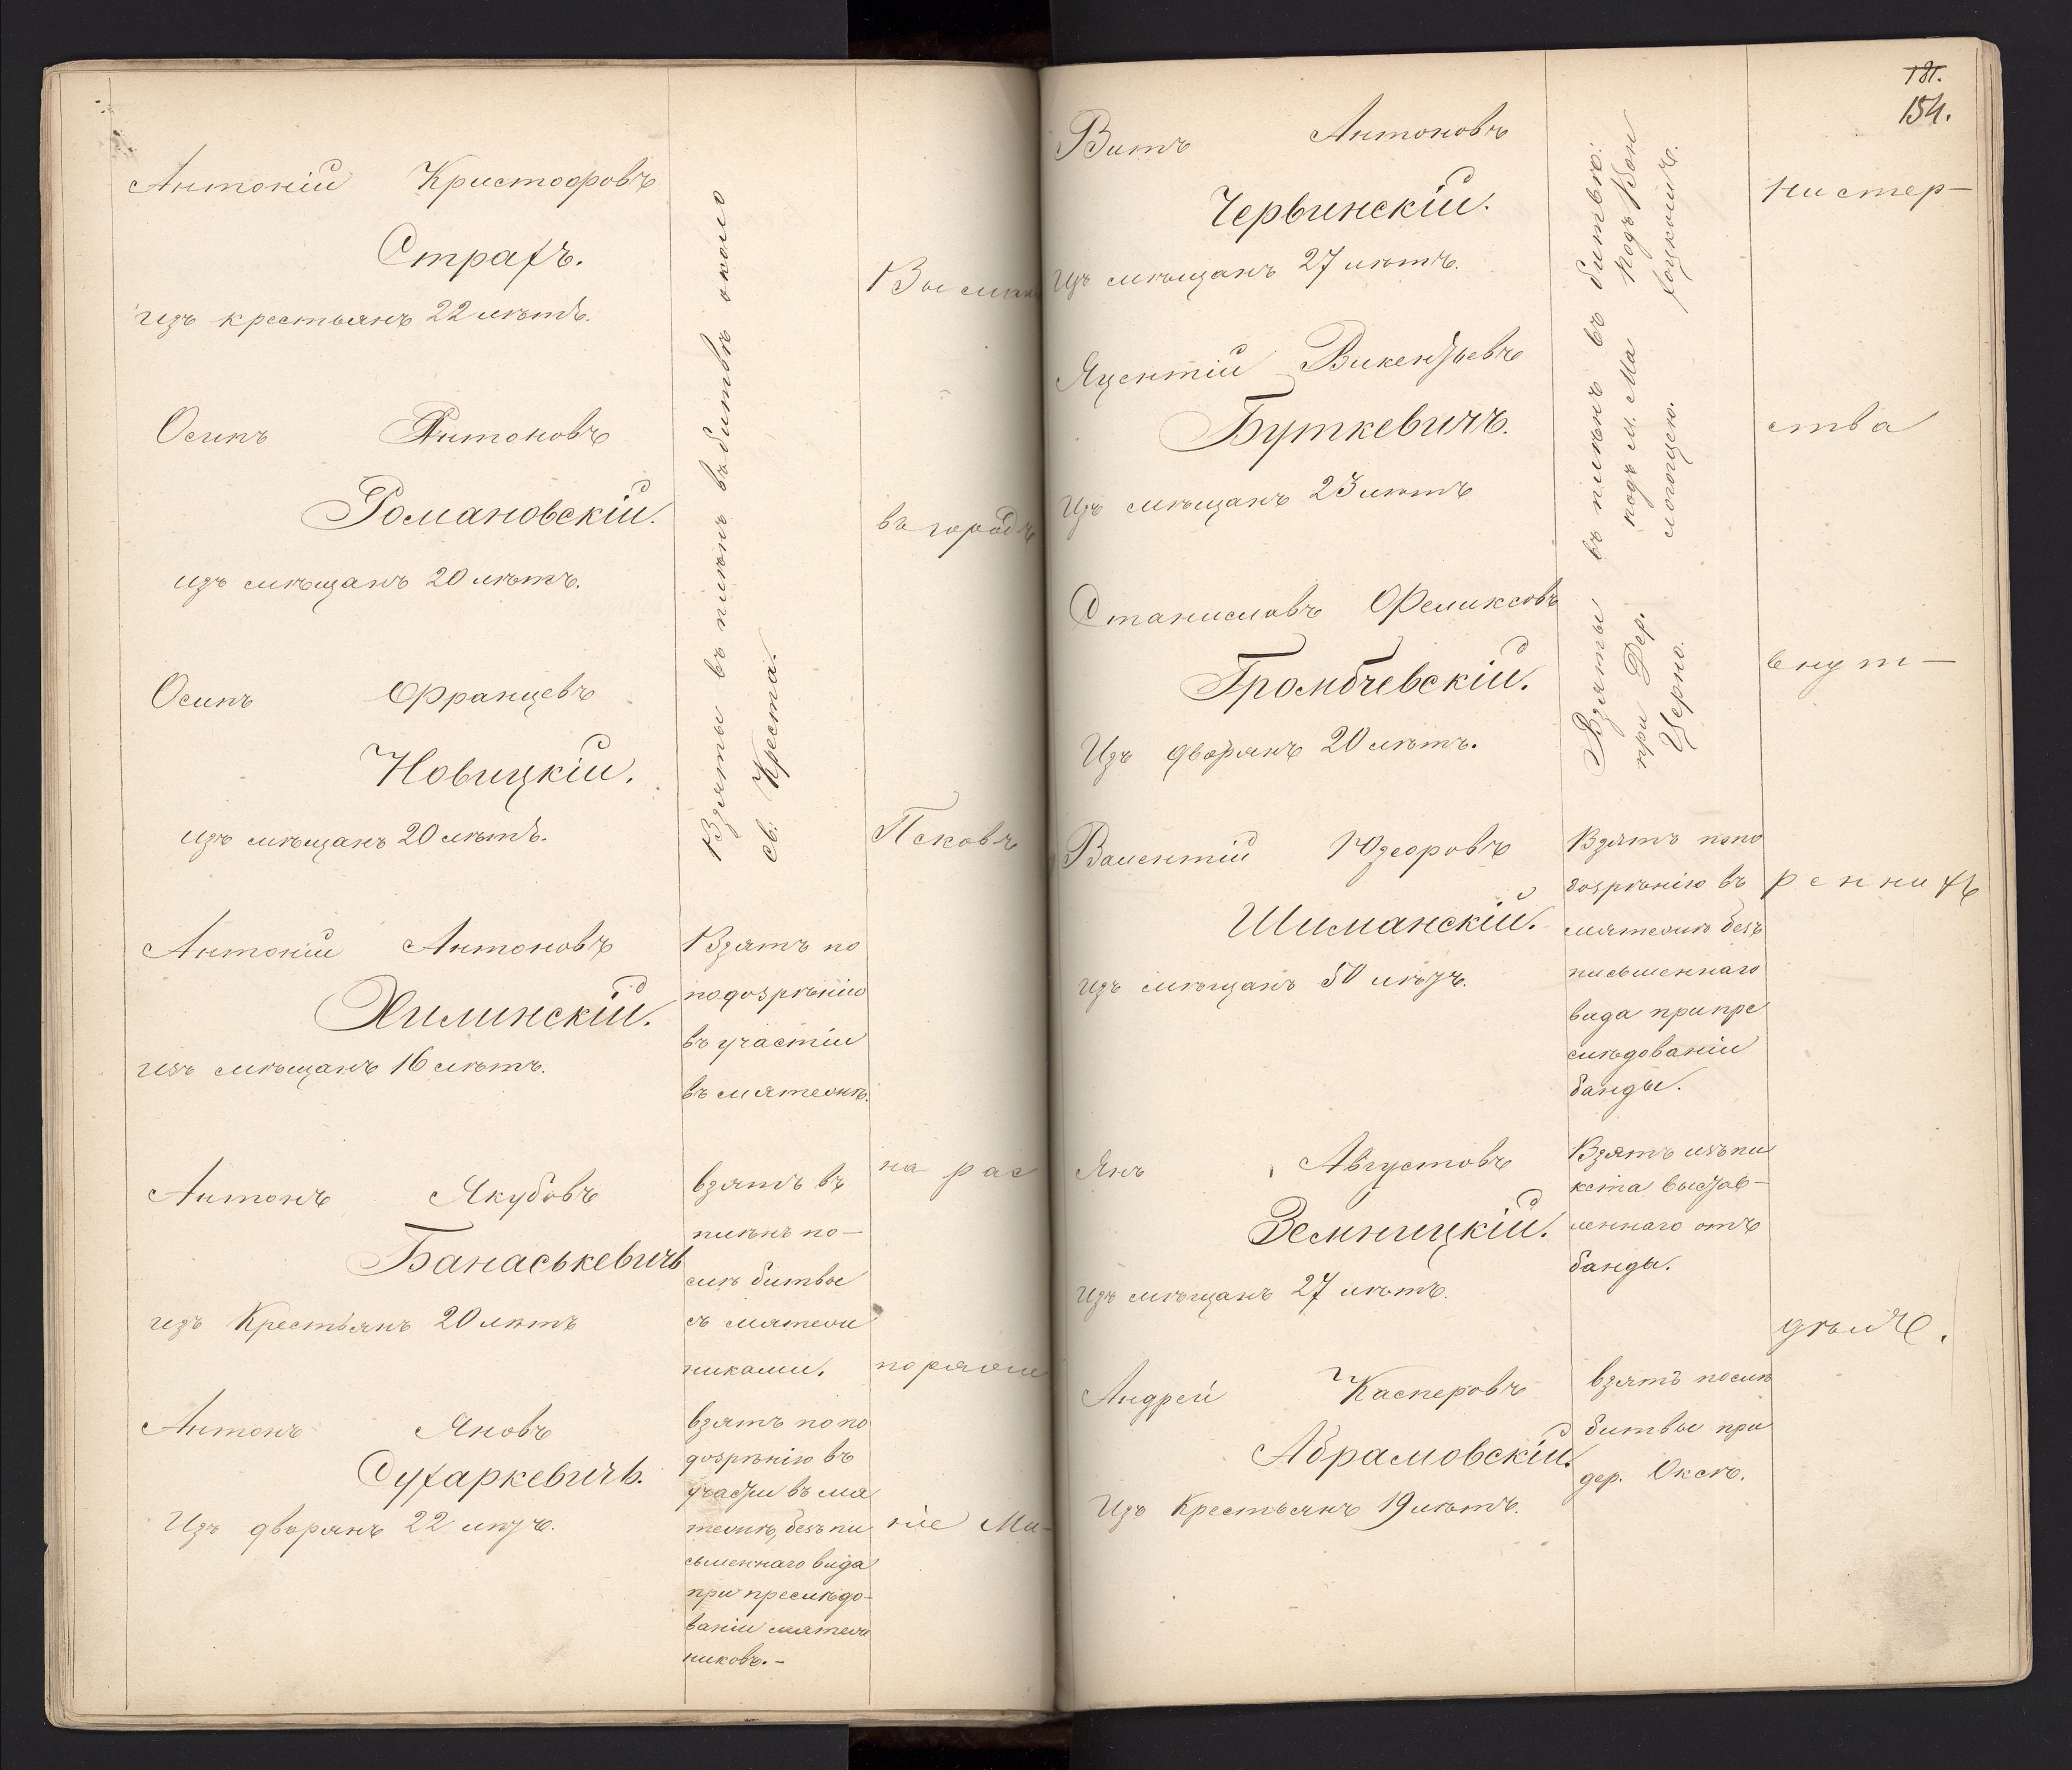 Антоній Кристофровъ
Страхъ.
изъ крестьянъ 22 лѣтъ.
Осипъ Антоновъ
Романовскій.
изъ мѣщанъ 20 лѣтъ.
Осипъ Францевъ
Новицкій.
изъ мѣщанъ 20 лѣтъ.
Взяты въ плѣнъ въ битвѣ около
св: Креста.
Антоній Антоновъ
Хилинскій.
изъ мѣщанъ 16 лѣтъ.
Взятъ по
подозрѣнію
въ участіи
въ мятежѣ.
Антонъ Якубовъ
Банаськевичъ
изъ Крестьянъ 20 лѣтъ
взятъ въ
плѣнъ по—
слѣ битвы
съ мятеж
никами.
Антонъ Яновъ
Сухаркевичъ.
Изъ дворянъ 22 лѣтъ.
взятъ по по
дозрѣнію въ
участіи въ мя
тежѣ, безъ пи
сьменнаго вида
при преслѣдо-
ваніи мятеж
никовъ.-
Высланы
въ городъ
Псковъ
на рас
поряже
ніе Ми-
181.
154.
Витъ Антоновъ
Червинскій.
Изъ мѣщанъ 27 лѣтъ.
Яцентій Викентьевъ
Буткевичъ.
Изъ мѣщанъ 23 лѣтъ
Станиславъ Феликсовъ
Громбчевскій.
Изъ дворянъ 20 лѣтъ.
Взяты въ плѣнъ въ битвѣ:
при Дер. подъ м. Ма подъ Бон
Церно. логощею. хоцкимъ.
Валентій Юзефровъ
Шиманскій.
изъ мѣщанъ 50 лѣтъ.
Взятъ по по
дозрѣнію въ
мятежѣ безъ
письменнаго
вида при пре
слѣдованіи
банды.
Янъ Августовъ
Земницкій.
Изъ мѣщанъ 27 лѣтъ.
Взятъ изъ пи
кета выстав—
леннаго отъ
банды.
Андрей Касперовъ
Абрамовскій.
Изъ Крестьянъ 19 лѣтъ.
взятъ послѣ
битвы при
дер. Оксѣ.
нистер—
ства
внут—
реннихъ
дѣлъ.